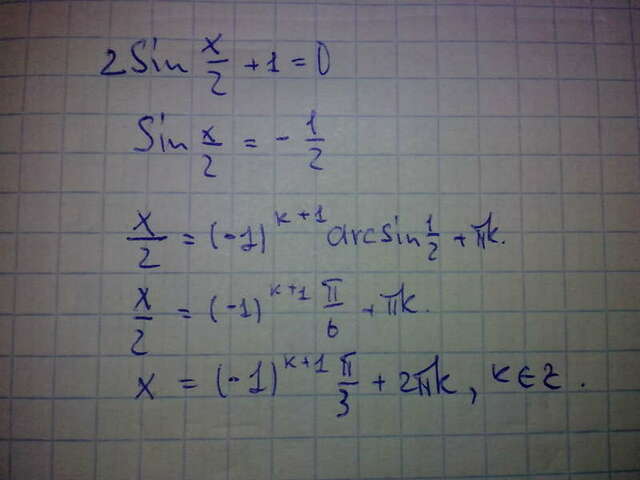 2Sin x/2 + 1 = 0
Sin x/2 = - 1/2
x/2 = (-1)^(k+1) arcsin 1/2 + πk.
x/2 = (-1)^(k+1) π/6 + πk.
x = (-1)^(k+1) π/3 + 2πk, k∈Z.